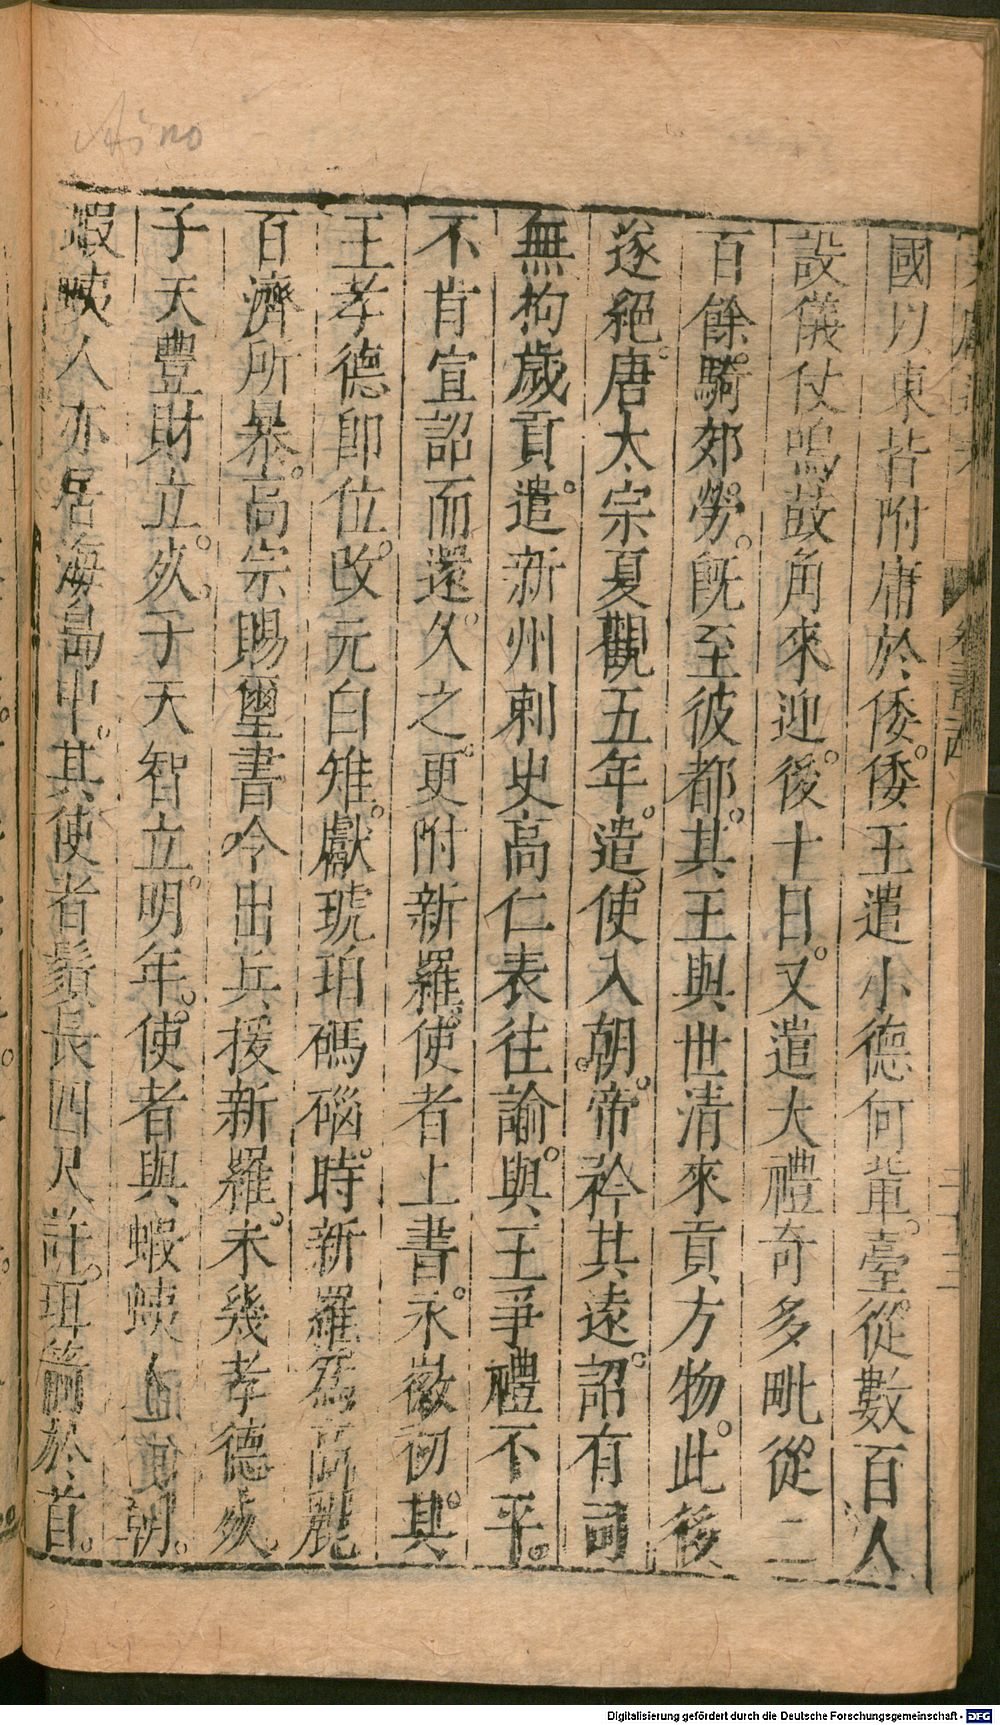 Aino
國以東皆附庸於倭。倭王遣小德何輩臺。從數百人
設儀仗鳴鼓角來迎。後十日。又遣大禮奇多毗從二
百餘騎郊勞。既至彼都。其王與世清來貢方物。此後
遂絕。唐太宗夏觀五年。遣使入朝。帝矜其遠。詔有司
無拘歲貢。遣新州刺史高仁表往諭。與王爭禮不平。
不肯宣詔而還。久之。更附新羅使者上書。永徽初。其
王孝德即位。改元白雉。獻琥珀碼碯。時新羅為高麗
百濟所暴。高宗賜璽書。令出兵援新羅。未幾孝德死。
子天豐財立。死。子天智立。明年。使者與蝦蛦人朝。
蝦蛦人亦居海島中。其使者鬚長四尺許。珥箭於首。
Digitalisierung gefördert durch die Deutsche Forschungsgemeinschaft - DFG